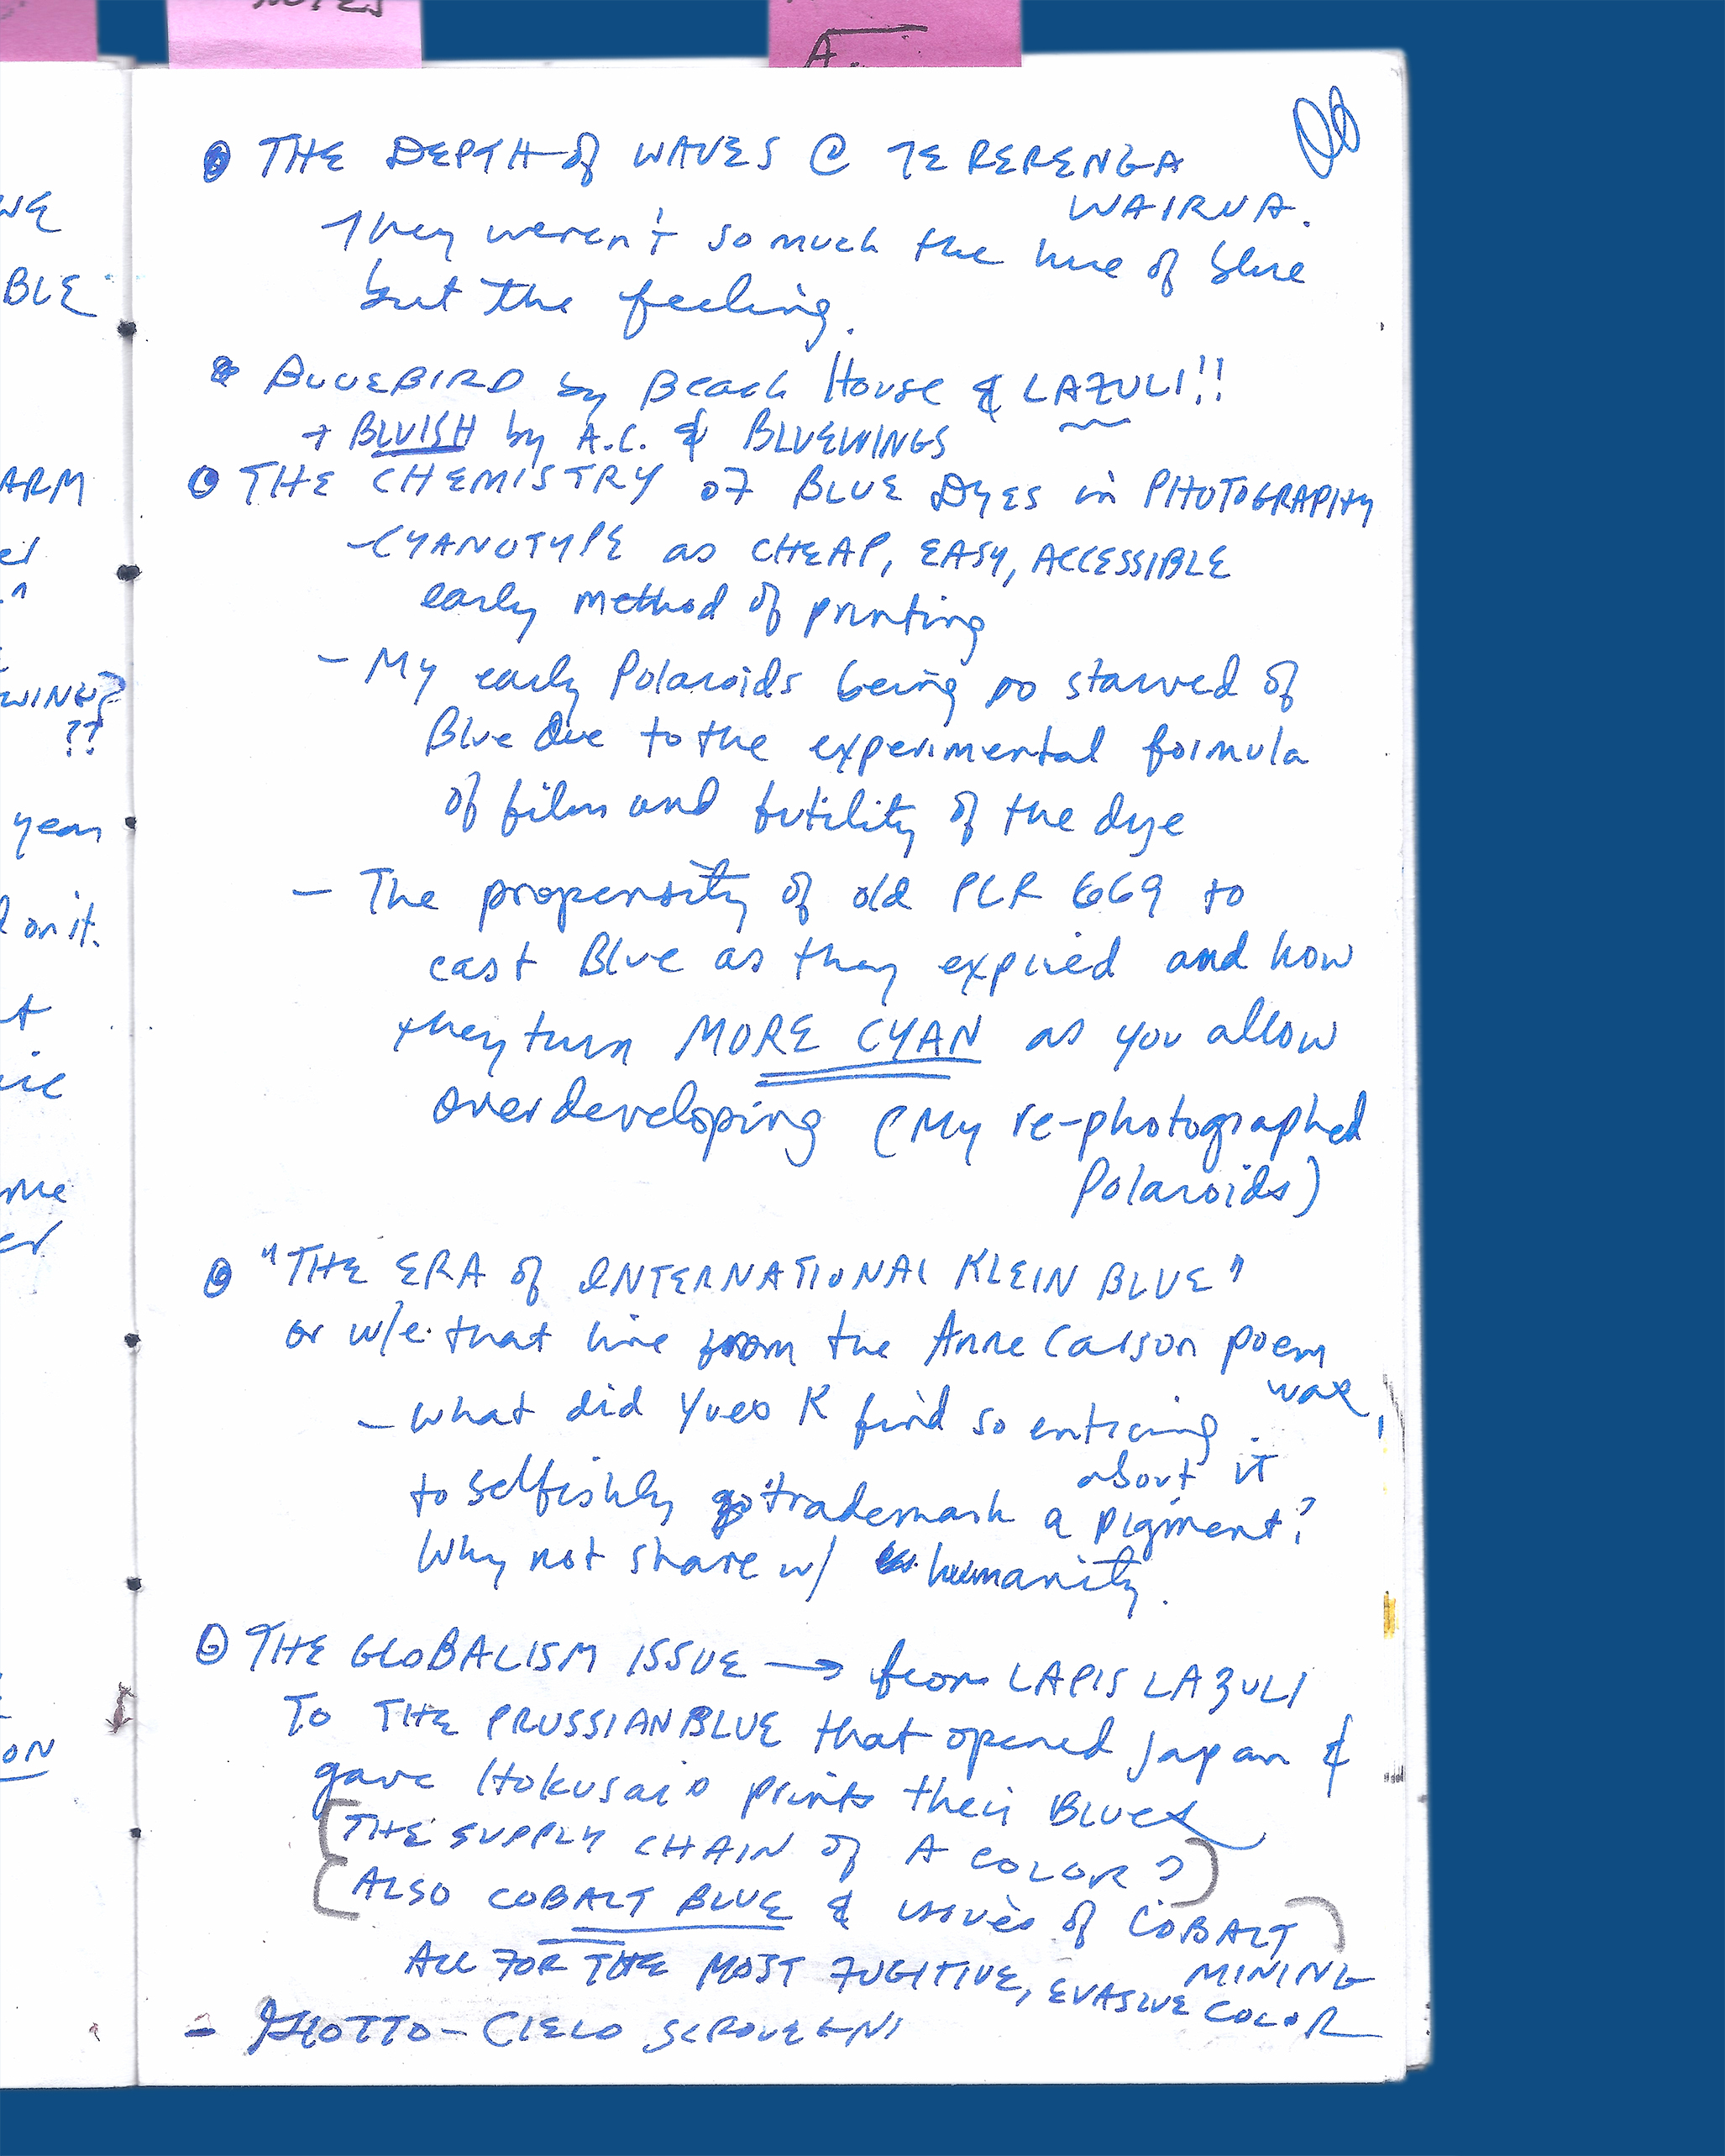 NOTES
A.
WE
BLE
ARM
er
WING?
??
year
d on it.
me
er
ON
THE DEPTH of WAVES @ TE RERENGA
WAIRUA.
They weren't so much the hue of blue
but the feeling.
BLUEBIRD by Beach House & LAZULI!!
+ BLUISH by A.C. & BLUEWINGS
THE CHEMISTRY of BLUE DYES in PHOTOGRAPHY
- CYANOTYPE as CHEAP, EASY, ACCESSIBLE
early method of printing
- My early Polaroids being so starved of
Blue due to the experimental formula
of film and futility of the dye
- The propensity of old PLR 669 to
cast Blue as they expired and how
they turn MORE CYAN as you allow
overdeveloping (My re-photographed
Polaroids)
"THE ERA of INTERNATIONAL KLEIN BLUE"
or w/e. that line from the Anne Carson poem
was,
- what did Yves K find so enticing
about it
to selfishly go trademark a pigment?
Why not share w/ humanity.
THE GLOBALISM ISSUE → from LAPIS LAZULI
TO THE PRUSSIAN BLUE that opened Japan &
gave Hokusai's prints their Blues
(THE SUPPLY CHAIN of A COLOR?)
(ALSO COBALT BLUE & issues of COBALT)
MINING
ALL FOR THE MOST FUGITIVE, EVASIVE COLOR
- GIOTTO - CIELO SCROVEGNI